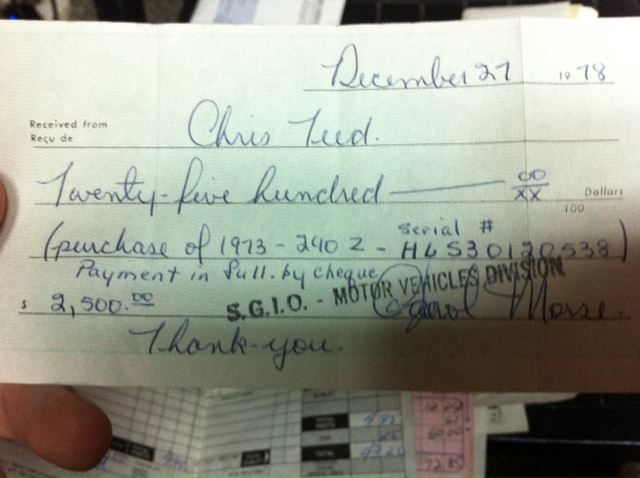 December 27 1978
Received from
Reçu de
Chris Teed.
Twenty-five hundred —— 00/XX Dollars
100
Serial #
(purchase of 1973 - 240 Z - HLS30120538)
Payment in full. by cheque
$ 2,500.00 Carol Morse.
S.G.I.O. - MOTOR VEHICLES DIVISION
Thank-you.
TOTAL